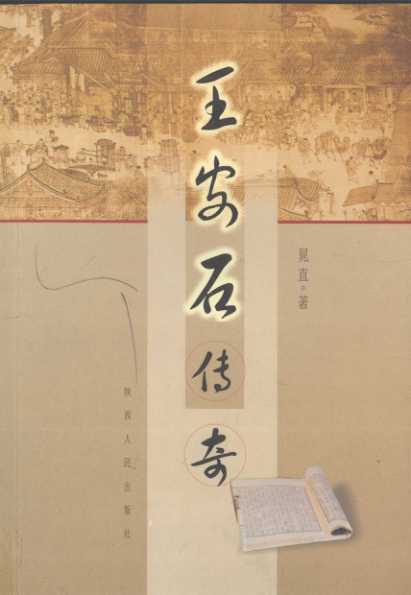 王安石传奇
晁直·著
陕西人民出版社